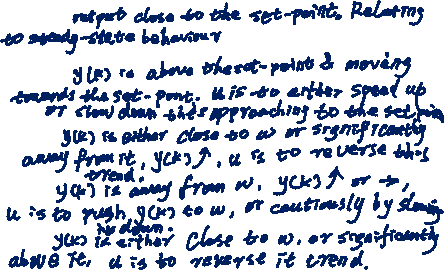 output close to the set-point. Relating
to steady-state behaviour
y(k) is above the set-point & moving
towards the set-point. u is to either speed up
or slow down this approaching to the set point
y(k) is either close to w or significantly
away from it, y(k)↑, u is to reverse this
trend.
y(k) is away from w, y(k)↑ or →,
u is to push y(k) to w, or cautiously by slowing
its down.
y(k) is either close to w, or significantly
above it. u is to reverse it trend.